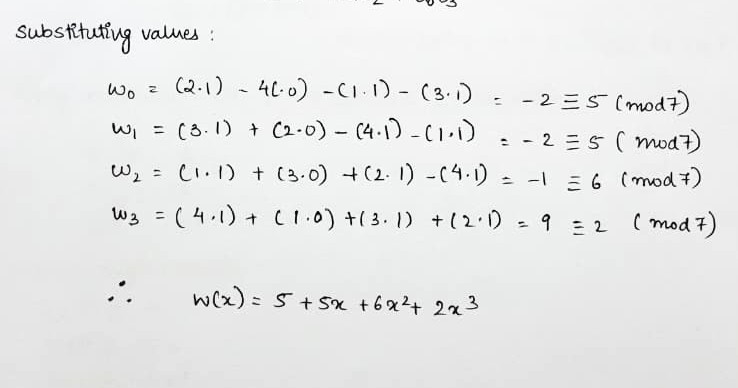 Substituting values :
w₀ = (2·1) - 4(·0) - (1·1) - (3·1) = -2 ≡ 5 (mod 7)
w₁ = (3·1) + (2·0) - (4·1) - (1·1) = -2 ≡ 5 ( mod 7)
w₂ = (1·1) + (3·0) + (2·1) - (4·1) = -1 ≡ 6 (mod 7)
w₃ = (4·1) + (1·0) + (3·1) + (2·1) = 9 ≡ 2 ( mod 7)
∴ w(x) = 5 + 5x + 6x² + 2x³